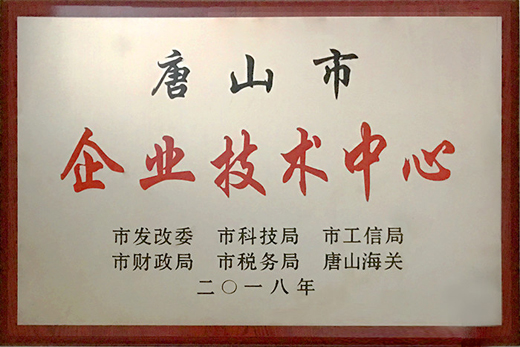 唐山市
企业技术中心
市发改委 市科技局 市工信局
市财政局 市税务局 唐山海关
二〇一八年